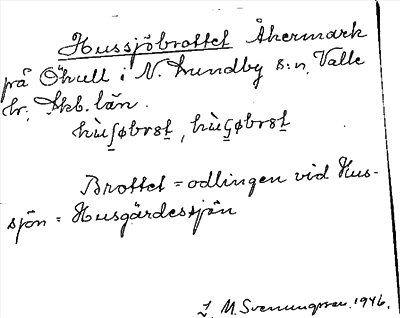 Hussjöbrottet Åkermark
på Öhull i N. Lundby s:n, Valle
hr, Skb. län.
hùʃøbrst, hùçøbrst
Brottet = odlingen vid Hus-
sjön = Husgärdessjön
M. Svenungsson 1946.